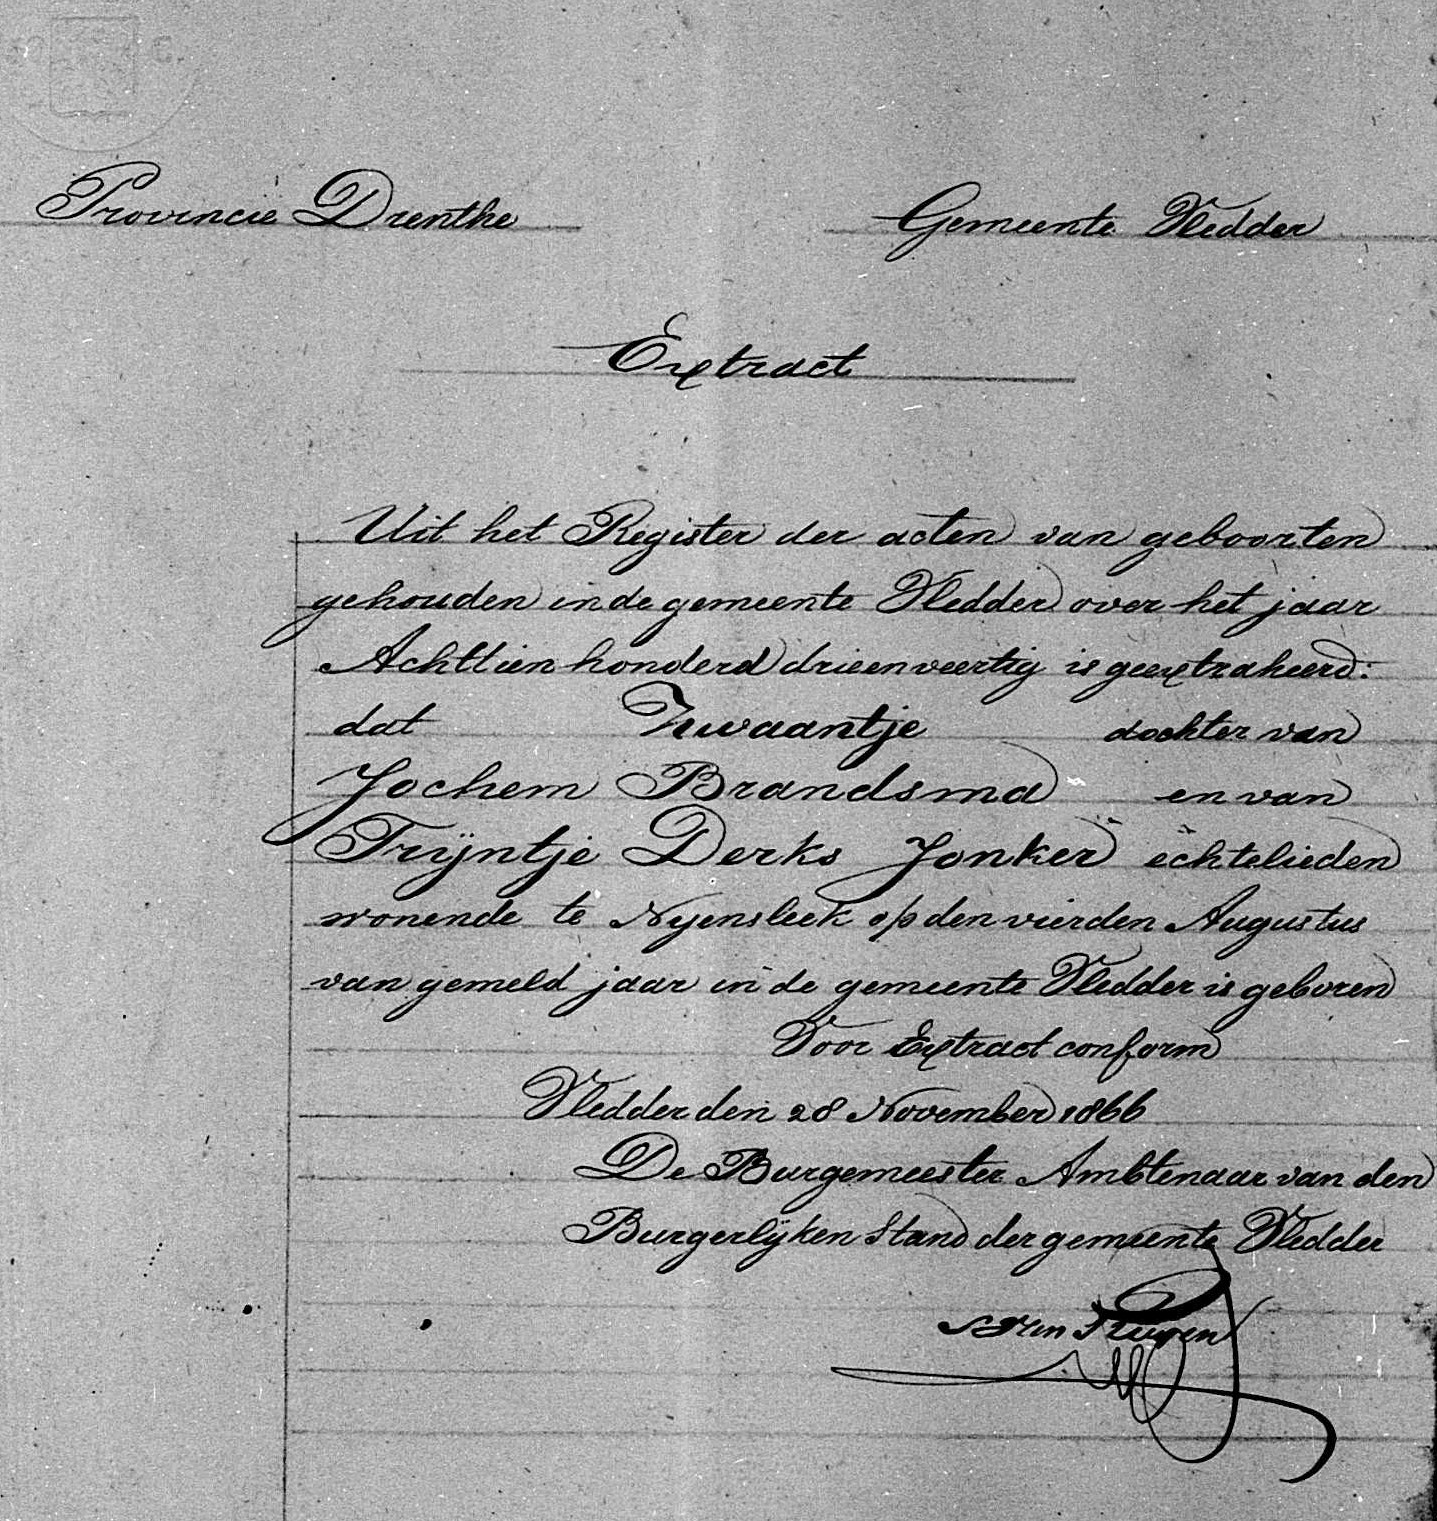 Provincie Drenthe
Gemeente Vledder
Extract
Uit het Register der acten van geboorten
gehouden in de gemeente Vledder over het jaar
Achttien honderd drieenveertig is geextraheerd:
dat Zwaantje dochter van
Jochem Brandsma en van
Trijntje Derks Jonker echtelieden
wonende te Nyensleek op den vierden Augustus
van gemeld jaar in de gemeente Vledder is geboren
Voor Extract conform
Vledder den 28 November 1866
De Burgemeester Ambtenaar van den
Burgerlijken Stand der gemeente Vledder